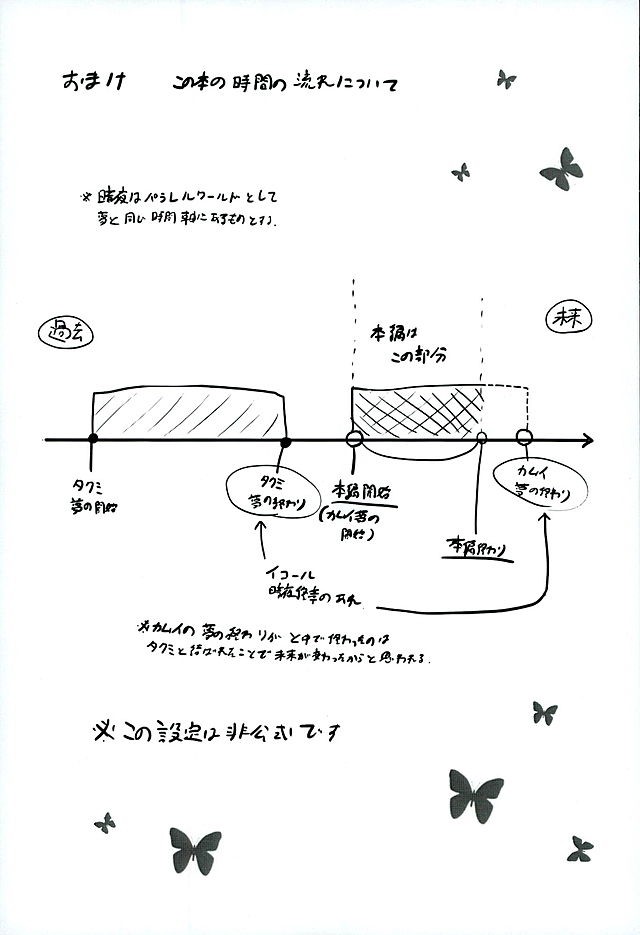 おまけ この本の時間の流れについて
※暗夜はパラレルワールドとして
夢と同じ時間軸にあるものとする.
過去
未来
本編は
この部分
タクミ
夢の開始
タクミ
夢の終わり
本編開始
(カムイ夢の
開始)
本編終わり
カムイ
夢の終わり
イコール
暗夜終章のあれ
※カムイの夢の終わりが とやで終わったのは
タクミと結ばれたことで未来が変わったからと思われる.
※この設定は非公式です